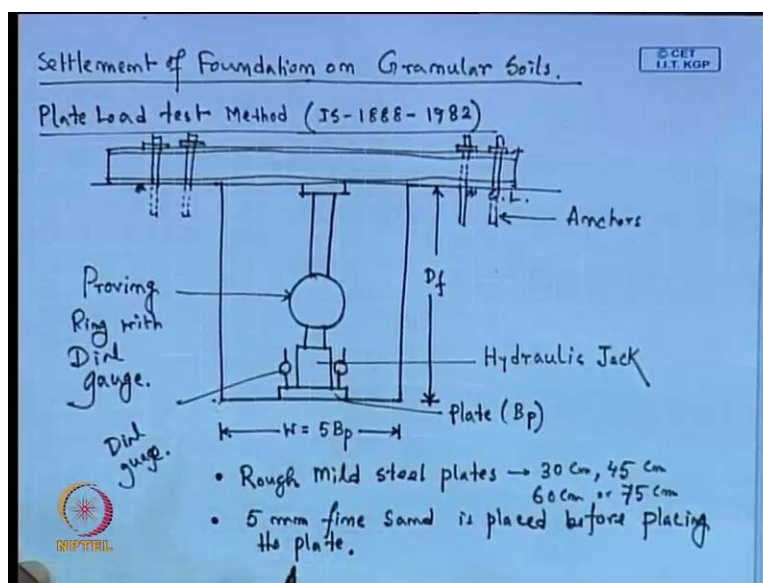 Settlement of Foundation on Granular Soils.
© CET
I.I.T. KGP
Plate Load test Method (IS-1888-1982)
G.L.
Anchors
Df
Proving
Ring with
Dial
gauge.
Hydraulic Jack
Plate (Bp)
W = 5Bp
Dial
guage.
• Rough mild steel plates → 30 cm, 45 cm
60 cm or 75 cm
• 5 mm fine sand is placed before placing
the plate.
NPTEL